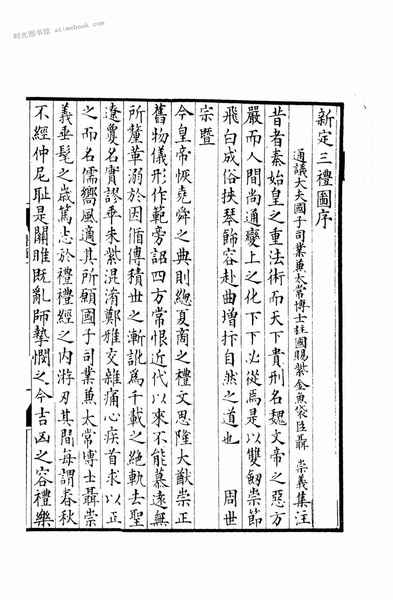 时光图书馆 atimebook.com
新定三禮圖序
通議大夫國子司業兼太常博士柱國賜紫金魚袋臣聶 崇義集注
昔者秦始皇之重法術而天下貴刑名魏文帝之惡方
嚴而人間尚通變上之化下下必從焉是以雙劒崇節
飛白成俗挾琴飾容赴曲增抃自然之道也 周世
宗暨
今皇帝恢堯舜之典則總夏商之禮文思隆大猷崇正
舊物儀形作範旁詔四方常恨近代以來不能慕遠無
所釐革溺於因循傳積世之漸訛爲千載之絶軌去聖
遼夐名實謬乖朱紫混淆鄭雅交雜痛心疾首求以正
之而名儒嚮風適其所願國子司業兼太常博士聶崇
義垂髦之嵗篤志於禮禮經之內游刃其間每謂春秋
不經仲尼恥是關雎既亂師摯憫之今吉凶之容禮樂